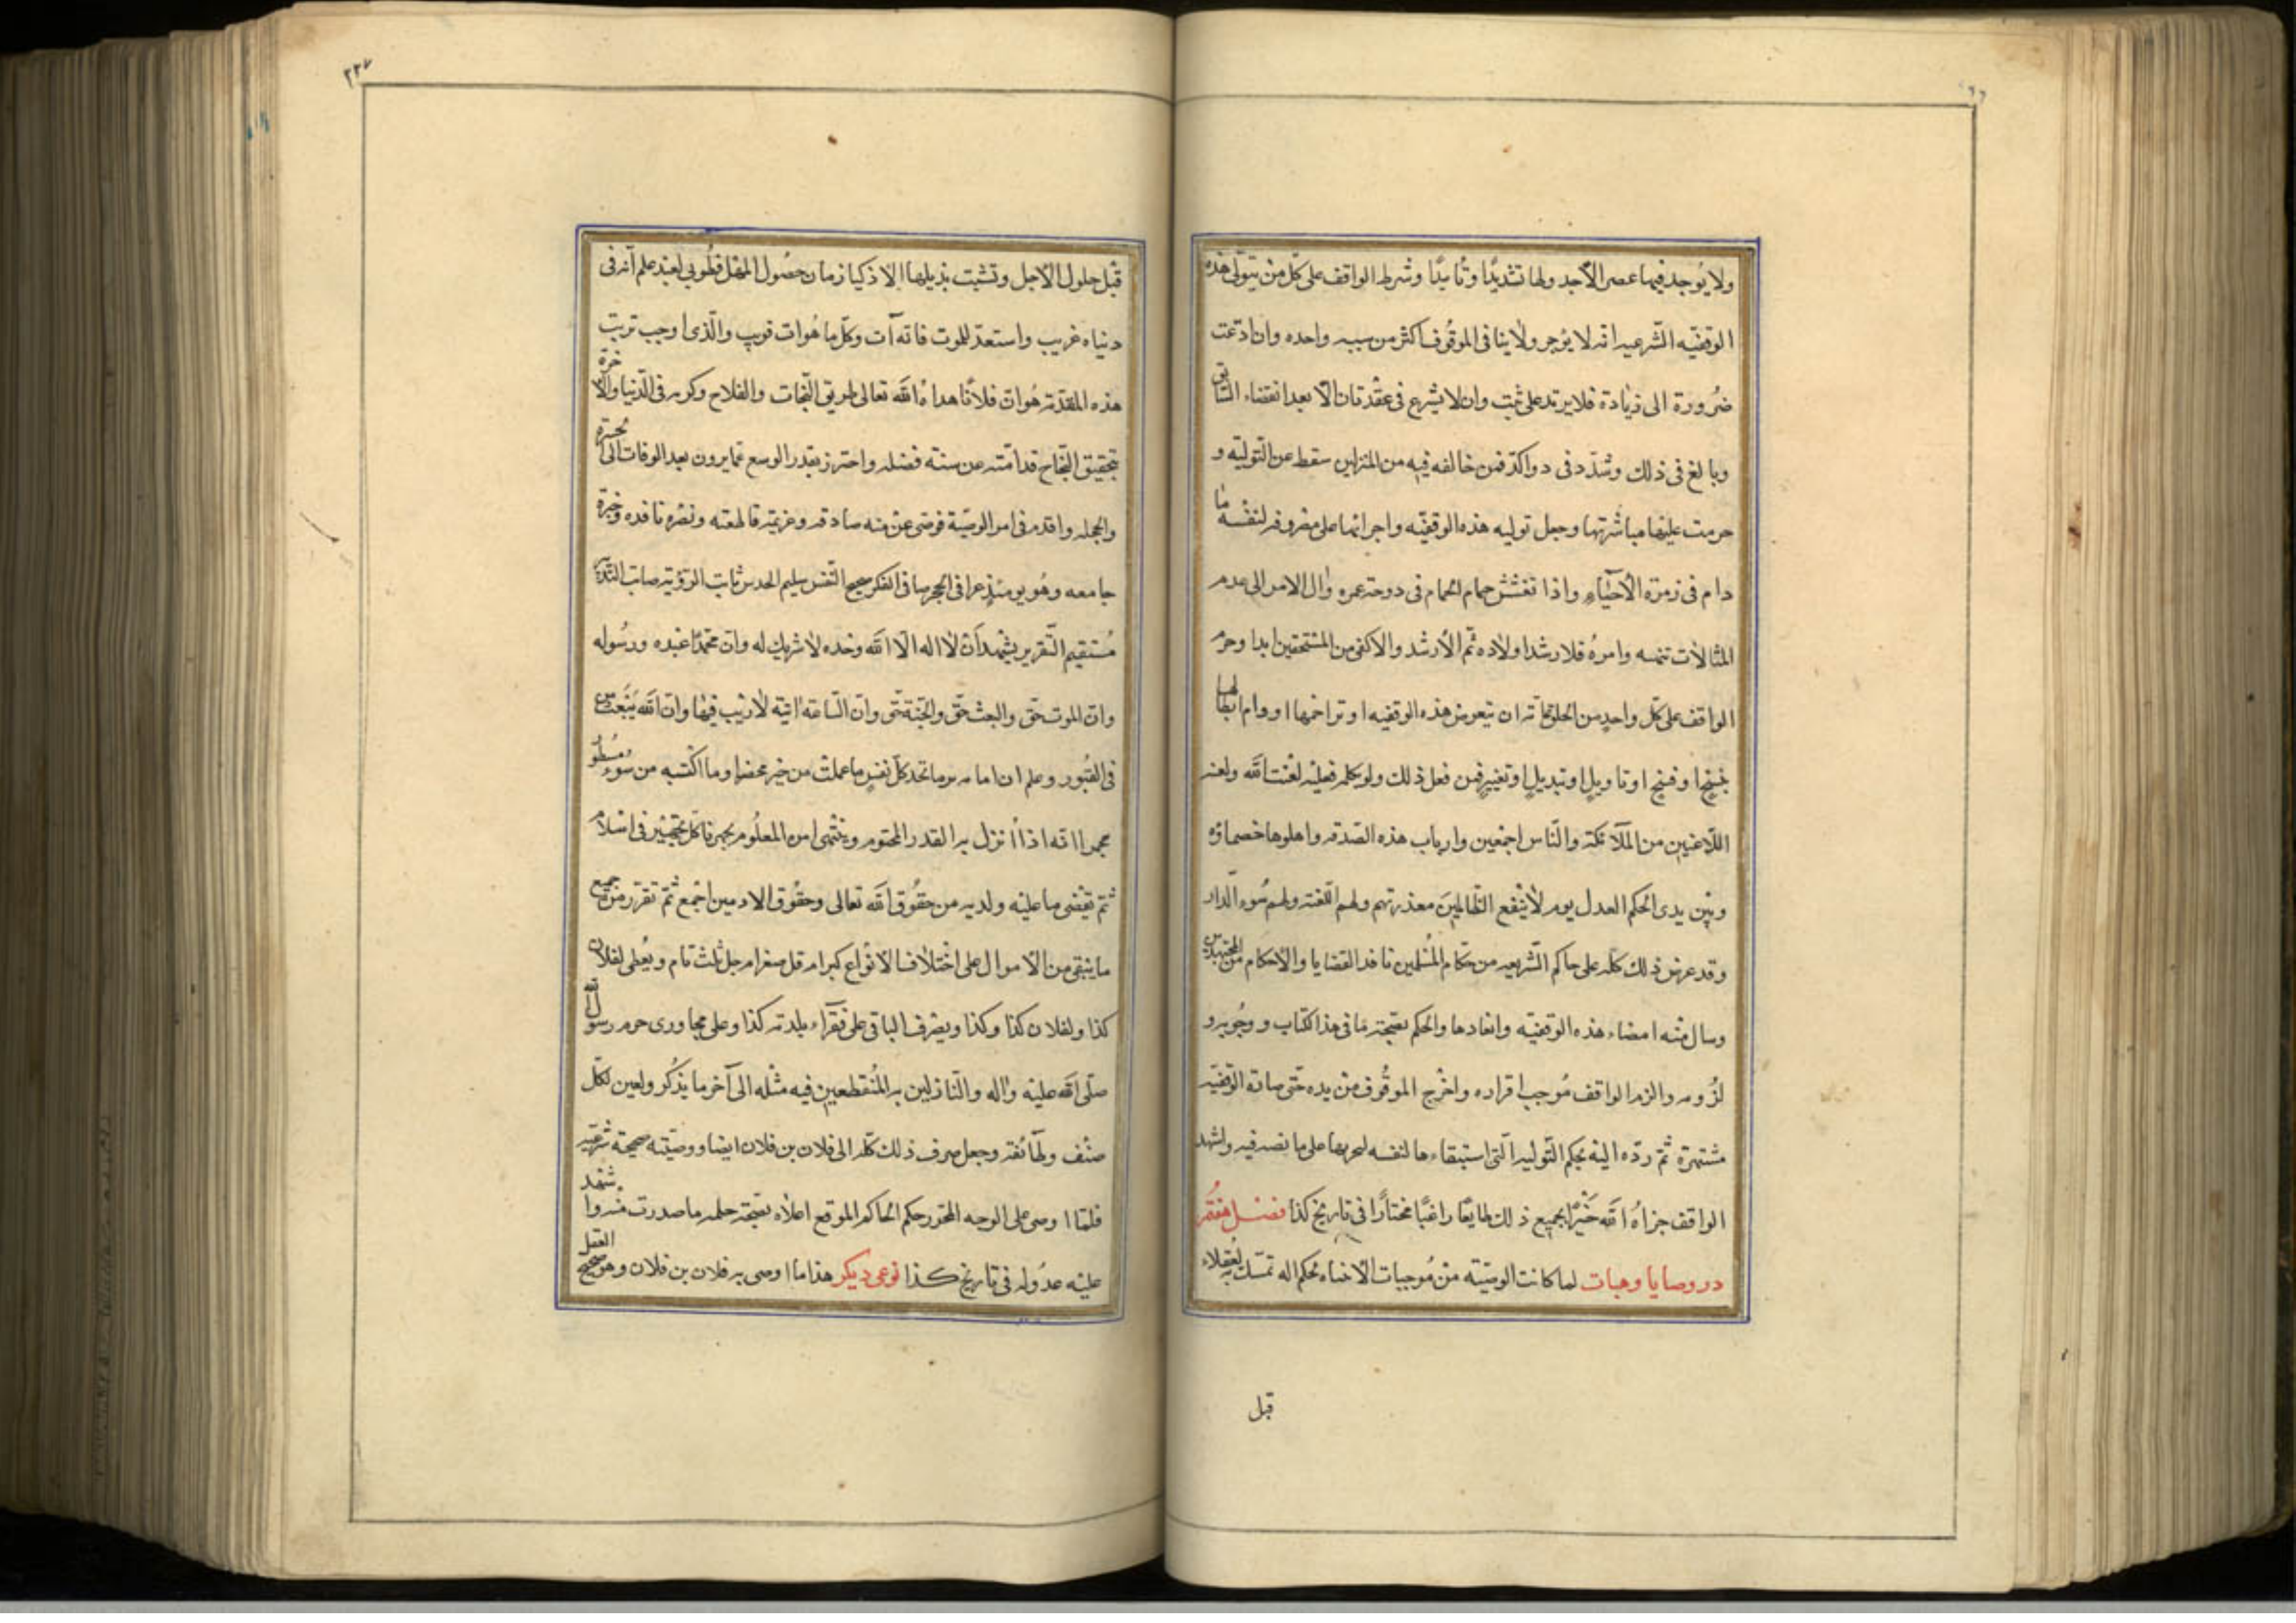 ولا يوجد فيها عصر الأجد ولها تشديدًا وتأبيدًا وشرط الواقف على كل من يتولى هذه
الوقفيه الشرعيه انه لا يؤجر ولا ينافى الموقوف اكثر من سنه واحده وان ادعت
ضرورة الى زيادة فلا يزيد على ثلث وان لا يشرع فى عقد ثان الا بعد انقضاء السابق
وبالغ فى ذلك وشدد فى واكد فمن خالفه فيه من المتولين سقط عن التولية و
حرمت عليها مباشرتها وجعل توليه هذه الوقفيه واجرائها على مصروفه لنفسه ما
دام فى زمرة الأحياء واذا تغشش حمام الحمام فى دوحة عمره وال الامر الى عدم
امره فلارشد اولاده ثم الأرشد والاكفى من المستحقين ابدا وحرم
الواقف على كل واحد من ان يتعرض هذه الوقفيه او تراحمها او رام ابطالها
بنسخ او فسخ او تاويل او تبديل او تغيير فمن فعل ذلك ولو بكلمه فعليه لعنت الله ولعنه
اللاعنين من الملائكة والناس اجمعين وارباب هذه الصدقه واهلوها خصماؤه
وبين يدى الحكم العدل يوم لا ينفع الظالمين معذرتهم ولهم اللعنة ولهم سوء الدار
وقد عرض ذلك كله على حاكم الشريعه من حكام المسلمين نافذ القضايا والأحكام من المجتهدين
وسال منه امضاء هذه الوقفيه وانفادها والحكم بصحته ما فى هذا كتاب ووجوبه و
لزومه والزم الواقف موجب اقراره واخرج الموقوف من يده حتى صارة الوقفيه
مشتهرة ثم رده اليه بحكم التوليه التى استبقاءها لنفسه على ما نصه فيه واشهد
الواقف جزاه الله خيرًا بجميع ذلك طايعًا راغبًا مختارًا فى تاريخ كذا فصل هفتم
در وصايا وهبات لما كانت الوصيته من موجبات الانتباه بحكم اله تمسك به العقلاء
قبل
٢٢٧
قبل حلول الأجل وتشبت بذيلها الاذكيا زمان حصول المهل فطوبى لعبد علم انه فى
دنياه غريب واستعد للموت فانه آت وكل ما هوات قريب والذى اوجب ترتيب
هذه المقدمه هوان فلانًا هداه الله تعالى طريق النجات والفلاح وكرمه فى الدنيا والاخرة
بتحقيق النجاح قد امتنه عن سنته فضله واحترز بقدر الوسع عما يرون بعد الوفات الى الحسرة
والخجله واقدم فى امر الوصية فوصى عن نيه صادقه وعزيمة قاطعته ونظره نافده وخبرة
جامعه وهو يومئذ صافى الفكر صحيح النفس سليم الحدس ثابت الروية صائب التدبير
مستقيم التقرير يشهد أن لا اله الا الله وحده لا شريك له وان محمدًا عبده ورسوله
وان الموت حق والبعث حق والجنة حق وان الساعة اتية لا ريب فيها وان الله يبعث من
فى القبور وعلم ان امامه يوما تجد كل نفس ما عملت من خير محضرا وما اكتسبه من سوء مسطو
انه اذا نزل به القدر المحتوم وينتهى امره المعلوم
ثم تقضى ما عليه ولديه من حقوق الله تعالى وحقوق الادميين اجمع ثم تقرر من جميع
ما يبقى من الاموال على اختلاف الانواع كبر ام قل صغر ام جل ثلث تام ويعطى لفلان
كذا ولفلان كذا وكذا ويصرف الباقى على فقراء بلدته كذا وعلى مجاورى حرم رسول الله
صلى الله عليه واله والنازلين به المنقطعين فيه مثله الى آخر ما يذكر ولعين لكل
صنف وطائفه وجعل صرف ذلك كله الى فلان بن فلان ايضا ووصيته صحيحة شرعيه
فلما اوصى على الوجه المحرر حكم الحاكم الموقع اعلاه بصحته ما صدرت منه واشهد
عليه عدوله فى تاريخ كذا نوعى ديكر هذا ما اوصى به فلان بن فلان وهو صحيح العقل